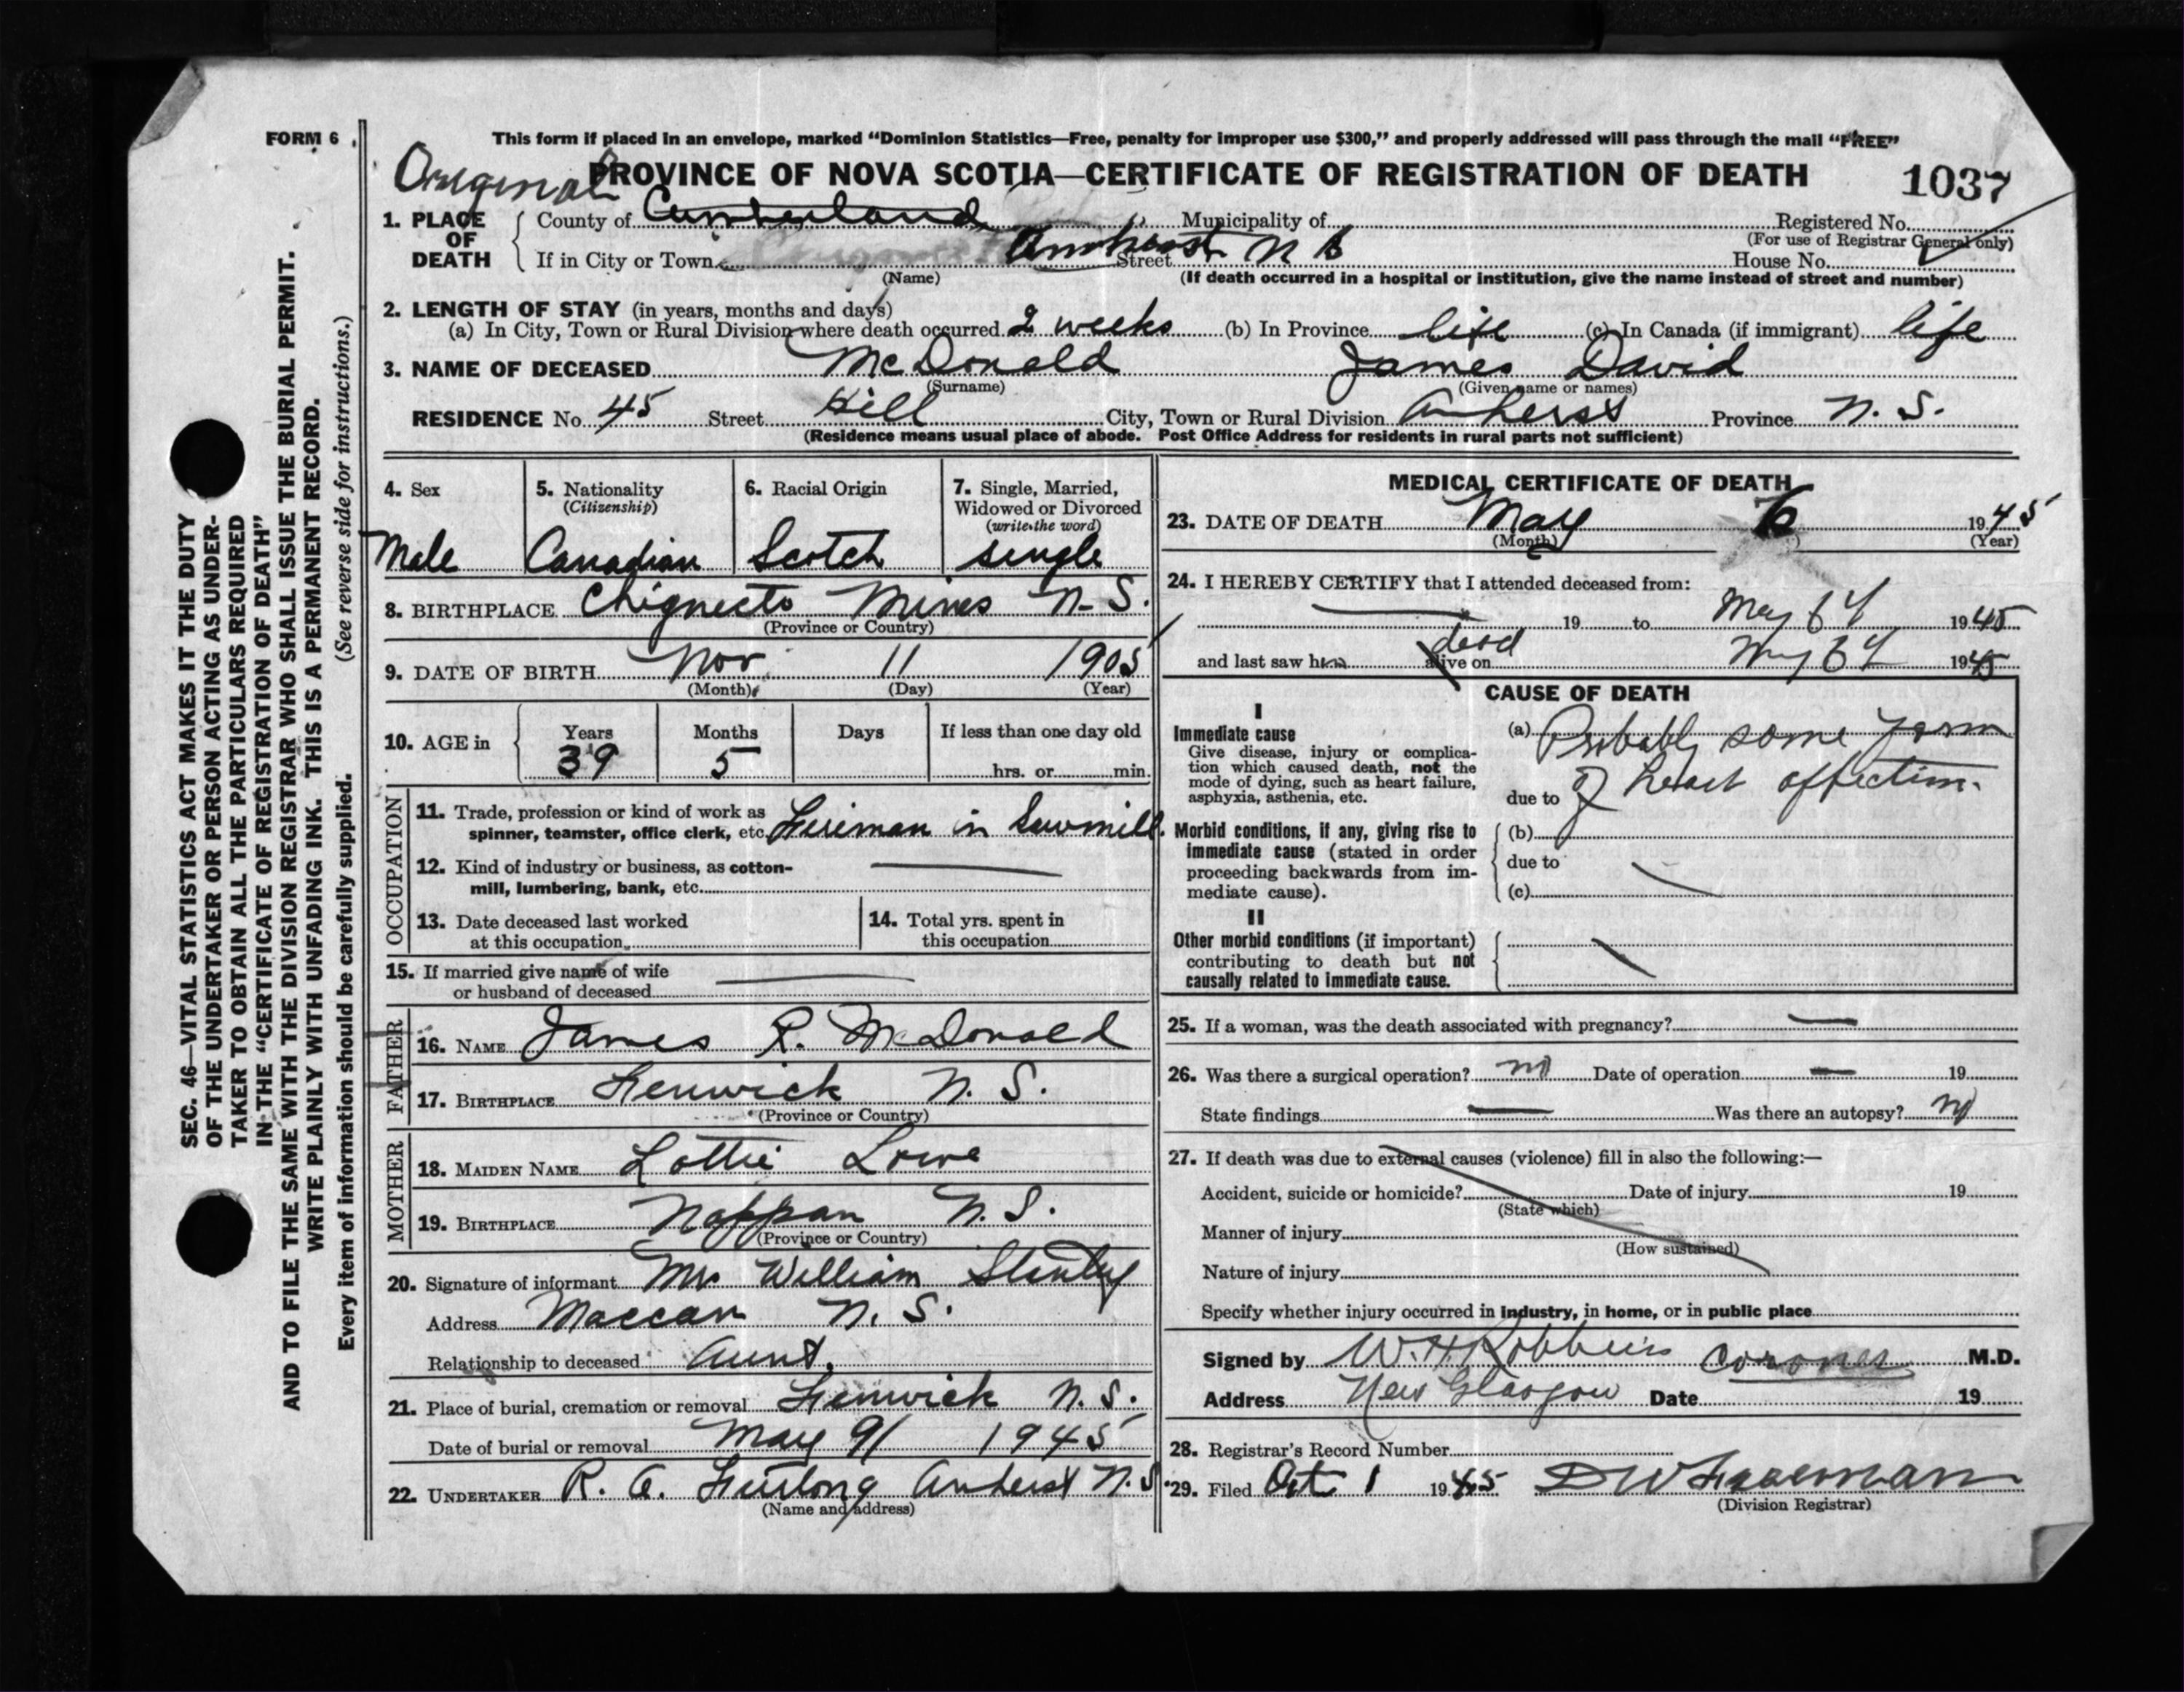 FORM 6
This form if placed in an envelope, marked "Dominion Statistics—Free, penalty for improper use $300," and properly addressed will pass through the mail "FREE"
Original
PROVINCE OF NOVA SCOTIA—CERTIFICATE OF REGISTRATION OF DEATH 1037
1. PLACE OF DEATH
County of Cumberland Municipality of Registered No.
(For use of Registrar General only)
If in City or Town Amherst Street House No.
(Name) (If death occurred in a hospital or institution, give the name instead of street and number)
2. LENGTH OF STAY (in years, months and days)
(a) In City, Town or Rural Division where death occurred 2 weeks (b) In Province life (c) In Canada (if immigrant) life
3. NAME OF DECEASED McDonald James David
(Surname) (Given name or names)
RESIDENCE No. 45 Street Hill City, Town or Rural Division Amherst Province N. S.
(Residence means usual place of abode. Post Office Address for residents in rural parts not sufficient)
4. Sex 5. Nationality (Citizenship) 6. Racial Origin 7. Single, Married, Widowed or Divorced (write the word)
Male Canadian Scotch single
8. BIRTHPLACE Chignecto Mines N-S.
(Province or Country)
9. DATE OF BIRTH Nov. 11 1905
(Month) (Day) (Year)
10. AGE in Years Months Days If less than one day old
39 5 hrs. or min.
OCCUPATION
11. Trade, profession or kind of work as
spinner, teamster, office clerk, etc. Fireman in Sawmill.
12. Kind of industry or business, as cotton-
mill, lumbering, bank, etc.
13. Date deceased last worked
at this occupation
14. Total yrs. spent in
this occupation
15. If married give name of wife
or husband of deceased
FATHER
16. NAME James R. McDonald
17. BIRTHPLACE Fenwick N. S.
(Province or Country)
MOTHER
18. MAIDEN NAME Lottie Lowe
19. BIRTHPLACE Nappan N. S.
(Province or Country)
20. Signature of informant Mrs William Stanley
Address Maccan N. S.
Relationship to deceased Aunt.
21. Place of burial, cremation or removal Fenwick N. S.
Date of burial or removal May 9/ 1945
22. UNDERTAKER R. A. Furlong Amherst N.S
(Name and address)
MEDICAL CERTIFICATE OF DEATH
23. DATE OF DEATH May 6 1945
(Month) (Year)
24. I HEREBY CERTIFY that I attended deceased from:
19 to May 6 1945
dead
and last saw him alive on May 6 1945
CAUSE OF DEATH
I
Immediate cause
Give disease, injury or complica-
tion which caused death, not the
mode of dying, such as heart failure,
asphyxia, asthenia, etc.
(a) Probably some form
due to of heart affection.
Morbid conditions, if any, giving rise to
immediate cause (stated in order
proceeding backwards from im-
mediate cause).
(b)
due to
(c)
II
Other morbid conditions (if important)
contributing to death but not
causally related to immediate cause.
25. If a woman, was the death associated with pregnancy?
26. Was there a surgical operation? no Date of operation 19
State findings Was there an autopsy? no
27. If death was due to external causes (violence) fill in also the following:—
Accident, suicide or homicide? Date of injury 19
(State which)
Manner of injury
(How sustained)
Nature of injury
Specify whether injury occurred in industry, in home, or in public place
Signed by W. H. Robbins Coroner M.D.
Address New Glasgow Date 19
28. Registrar's Record Number
29. Filed Oct 1 1945 D W
(Division Registrar)
SEC. 46—VITAL STATISTICS ACT MAKES IT THE DUTY
OF THE UNDERTAKER OR PERSON ACTING AS UNDER-
TAKER TO OBTAIN ALL THE PARTICULARS REQUIRED
IN THE "CERTIFICATE OF REGISTRATION OF DEATH"
AND TO FILE THE SAME WITH THE DIVISION REGISTRAR WHO SHALL ISSUE THE BURIAL PERMIT.
WRITE PLAINLY WITH UNFADING INK. THIS IS A PERMANENT RECORD.
Every item of information should be carefully supplied. (See reverse side for instructions.)